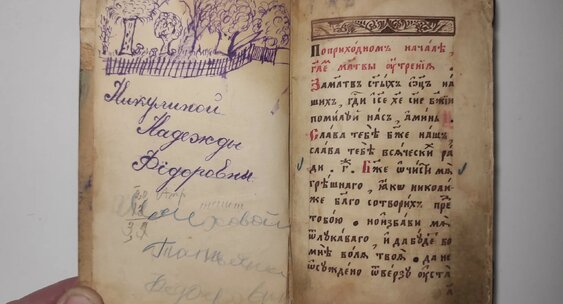 Никулиной
Надежды
Фёдоровны
Поприходномъ началѣ,
гл҃е мл҃твы ѹ҆́трення.
Замл҃твъ ст҃ыхъ ѻ҆ц҃ъ на
шихъ, гд҃и і҆с҃е хе҃ сн҃е бж҃їи
помилѹй насъ, аминь.
Слава тебѣ бж҃е нашъ
слава тебѣ всѧчески ра
ди. г҃. Бж҃е ѡ҆чисти мѧ
грѣшнаго, ꙗ҆кѡ николи
же бл҃го сотворихъ пре
тобою. ноизбави мѧ
ѿлѹкаваго, и҆дабѹде во
мнѣ волѧ твоѧ. да не
ѡ҆сѹжденно ѿверзѹ ѹ҆ста